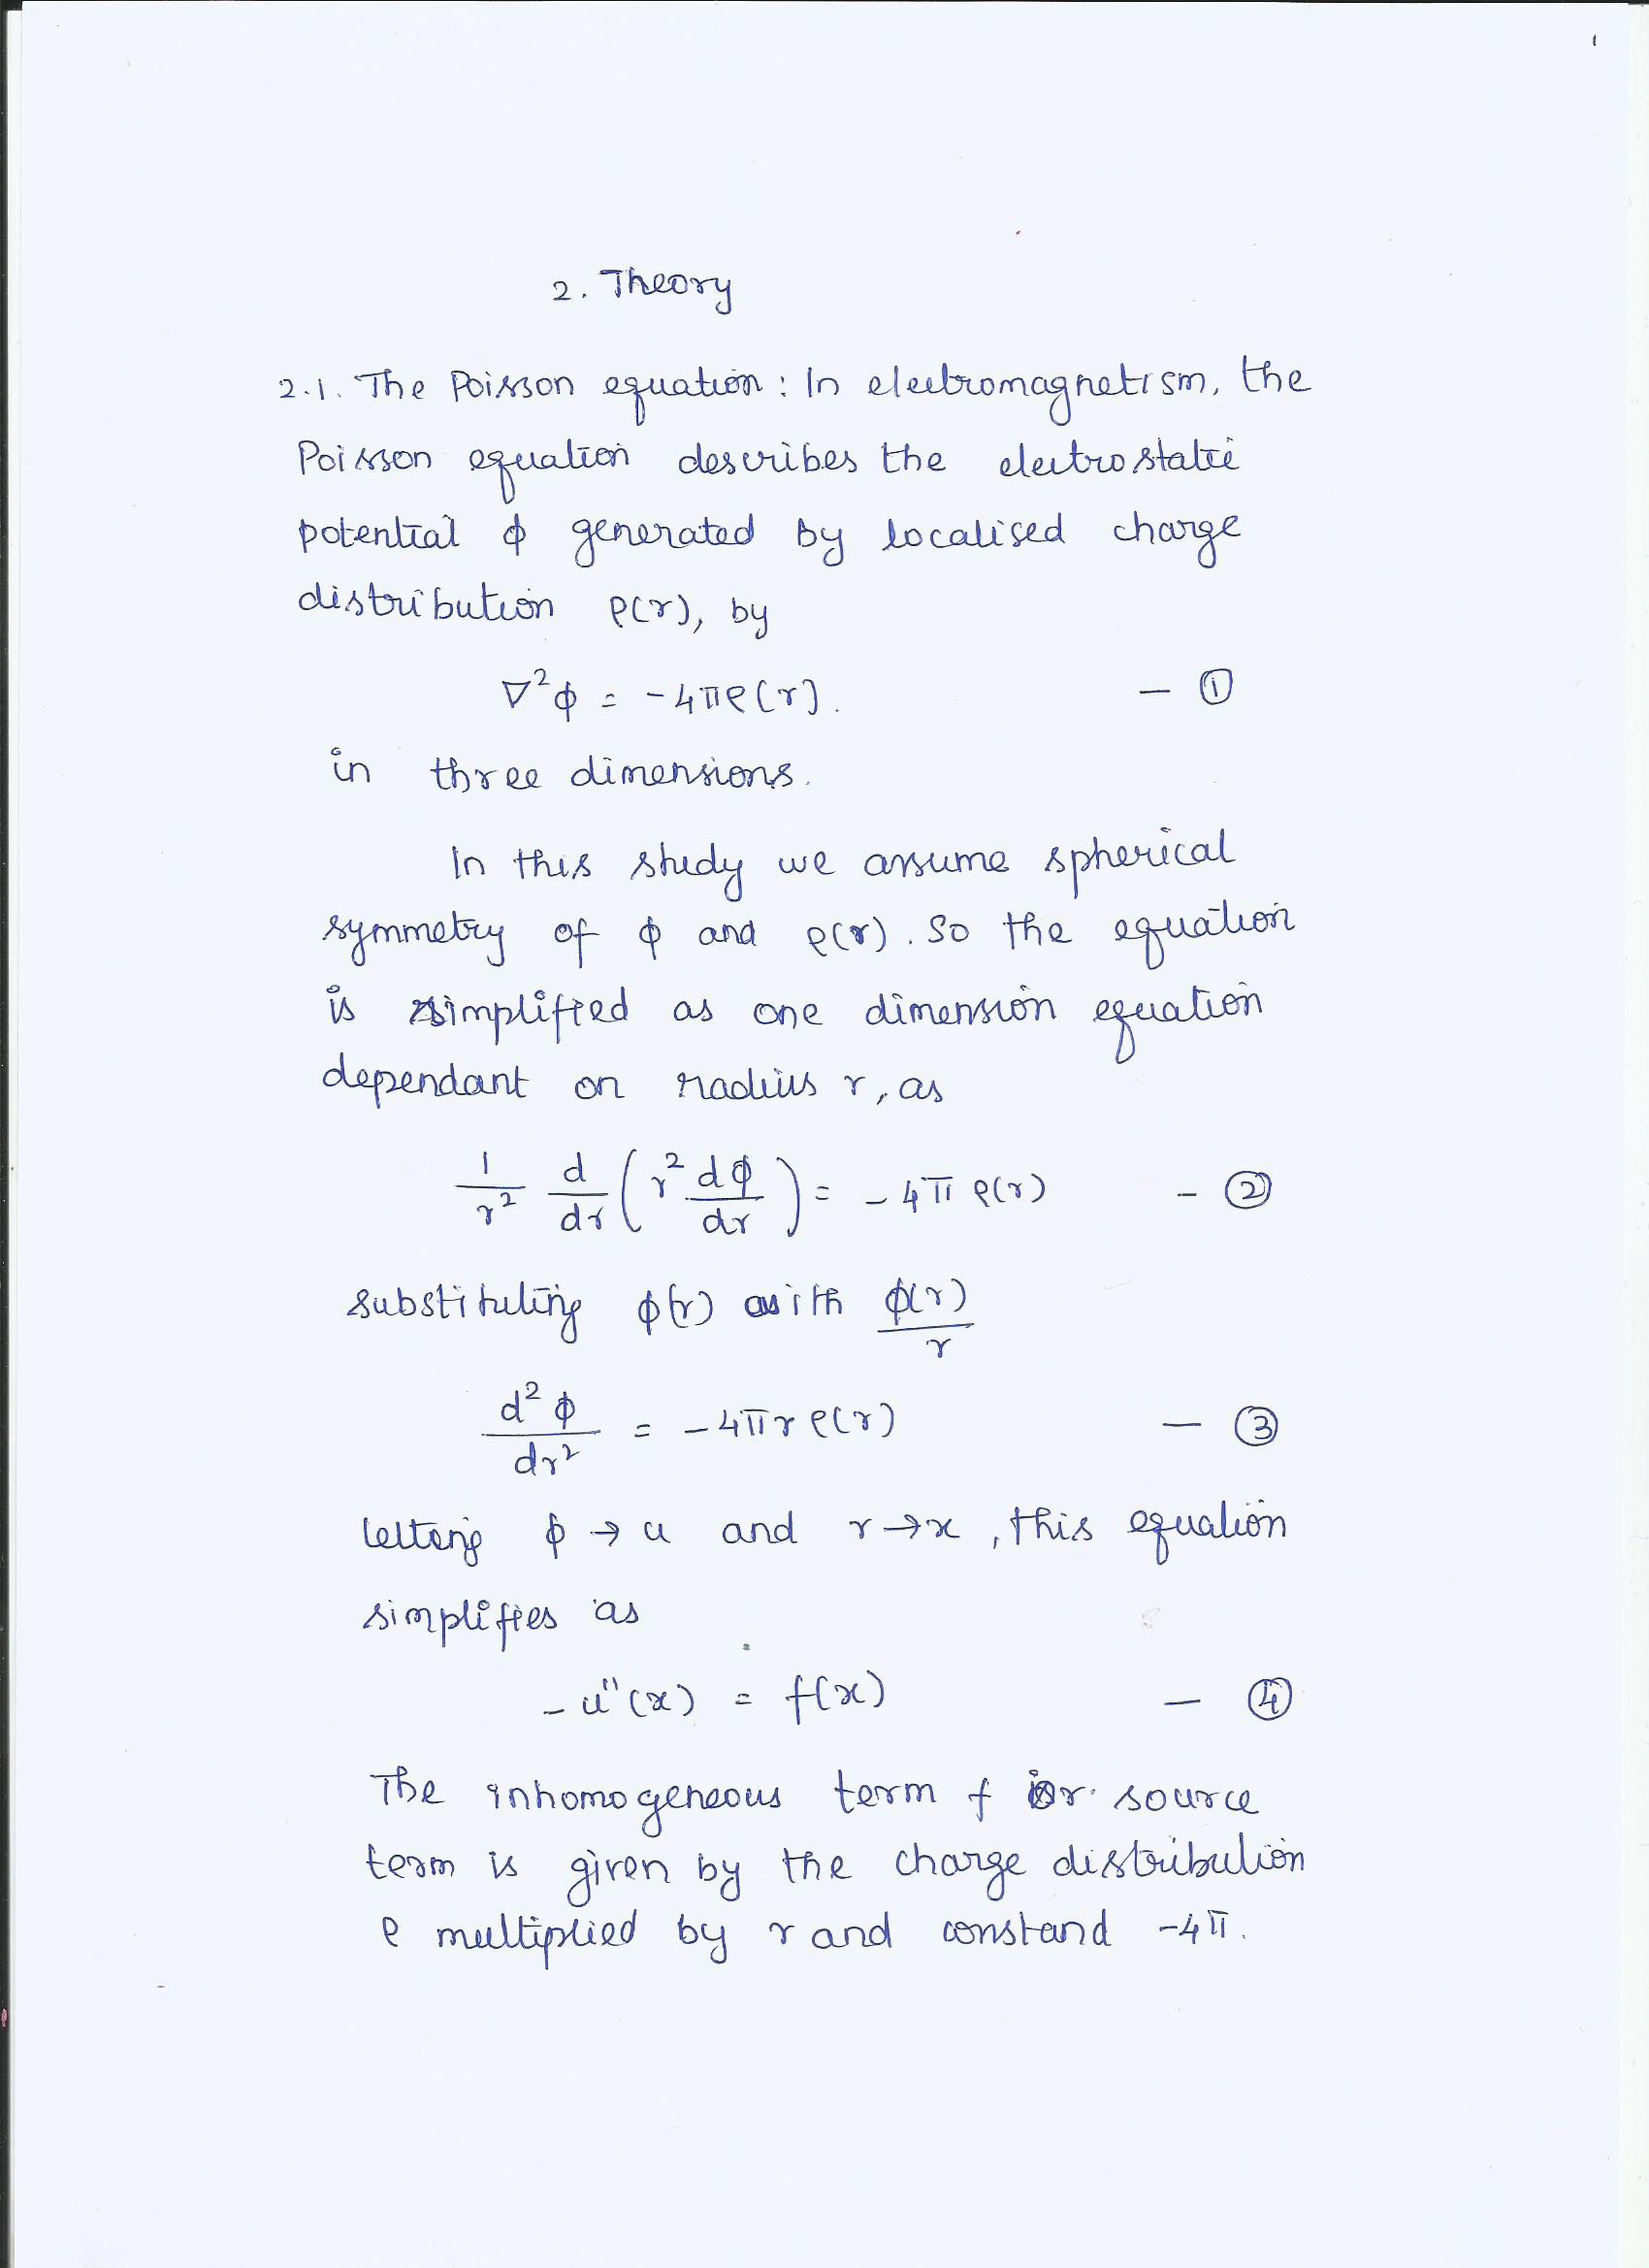 2. Theory
2.1. The Poisson equation : In electromagnetism, the
Poisson equation describes the electrostatic
potential φ generated by localised charge
distribution ρ(r), by
∇²φ = -4πρ(r). — ①
in three dimensions.
In this study we assume spherical
symmetry of φ and ρ(r). So the equation
is simplified as one dimension equation
dependant on radius r, as
1/r² d/dr (r² dφ/dr) = -4π ρ(r) - ②
substituting φ(r) with φ(r)/r
d²φ/dr² = -4πrρ(r) — ③
letting φ → u and r → x, this equation
simplifies as
-u''(x) = f(x) — ④
The inhomogeneous term f or source
term is given by the charge distribution
ρ multiplied by r and constand -4π.